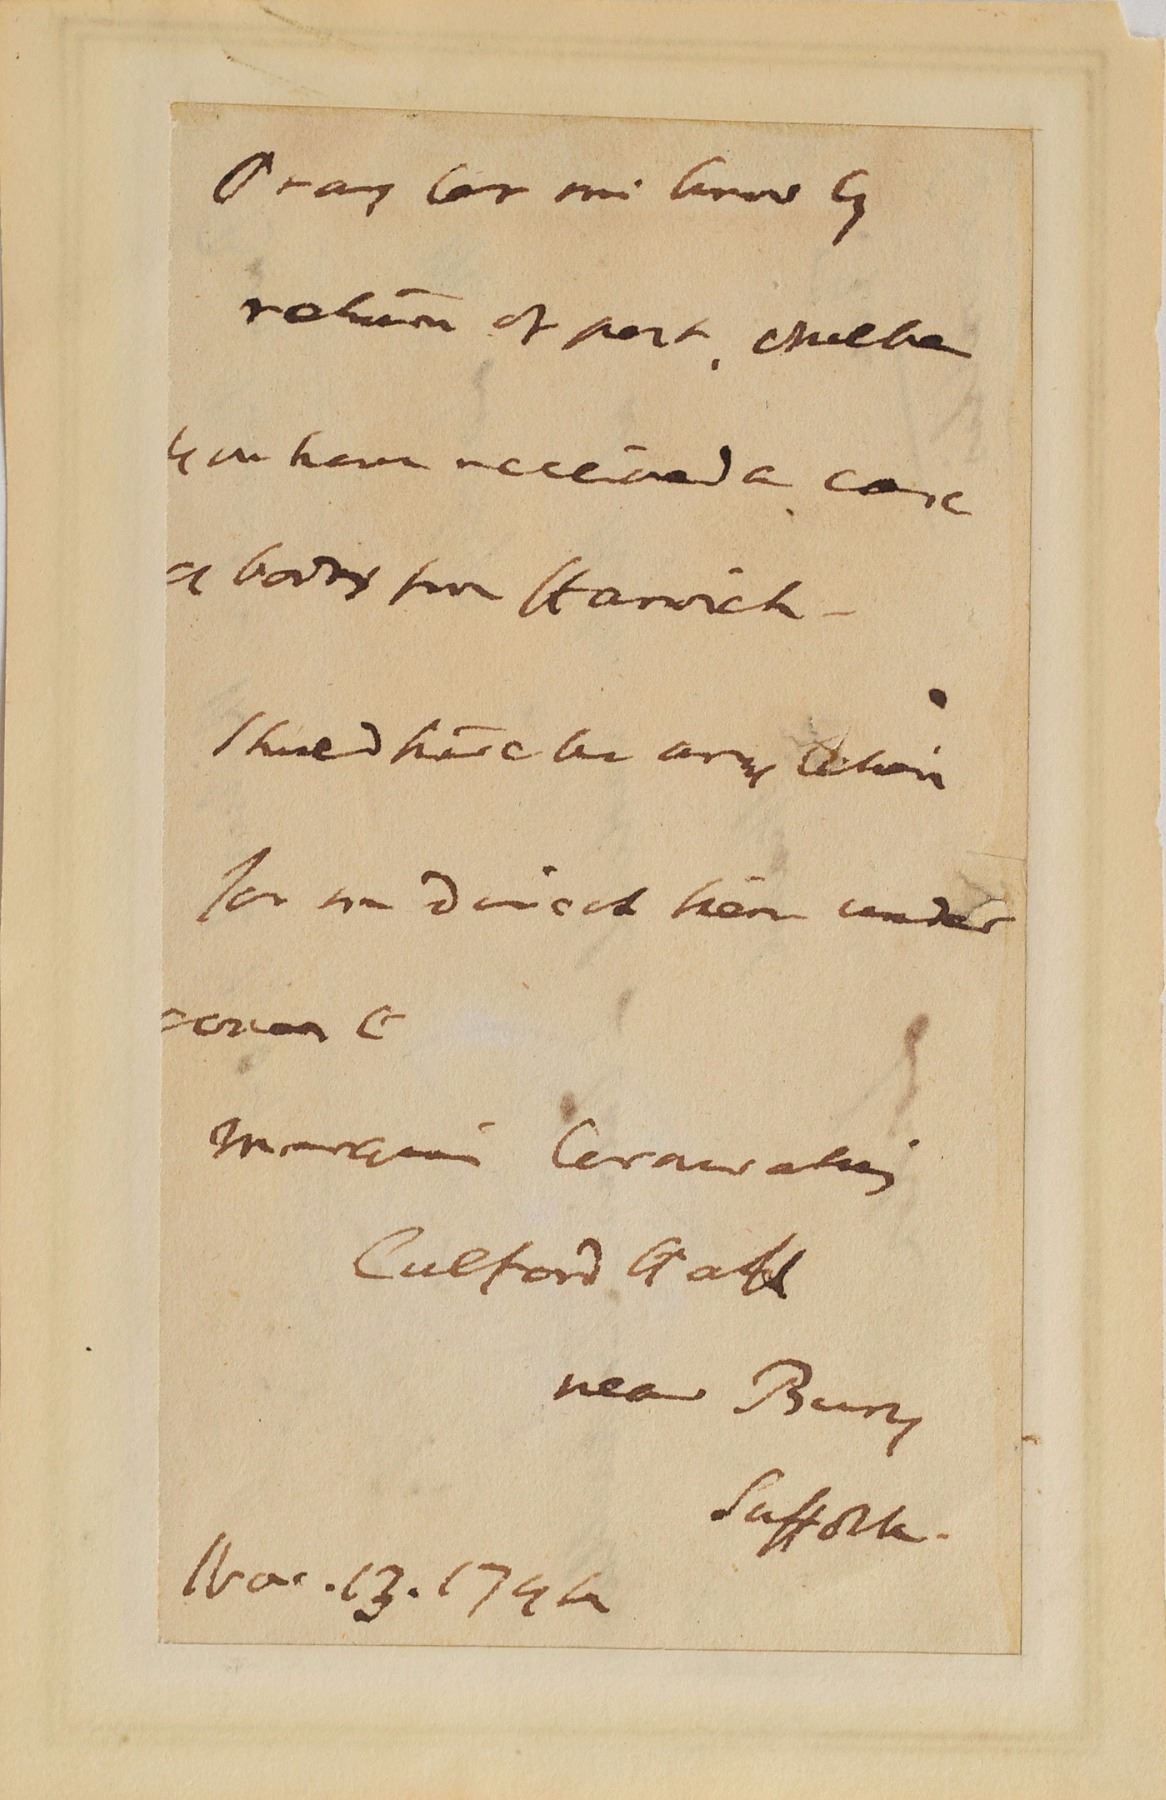 Pray let me know by
return of post, whether
you have received a case
of books from Harwich -
Shued there be any letters
for me direct them under
cover to
Marquis Cornwallis
Culford Hall
near Bury
Suffolk.
Nov. 13. 1794